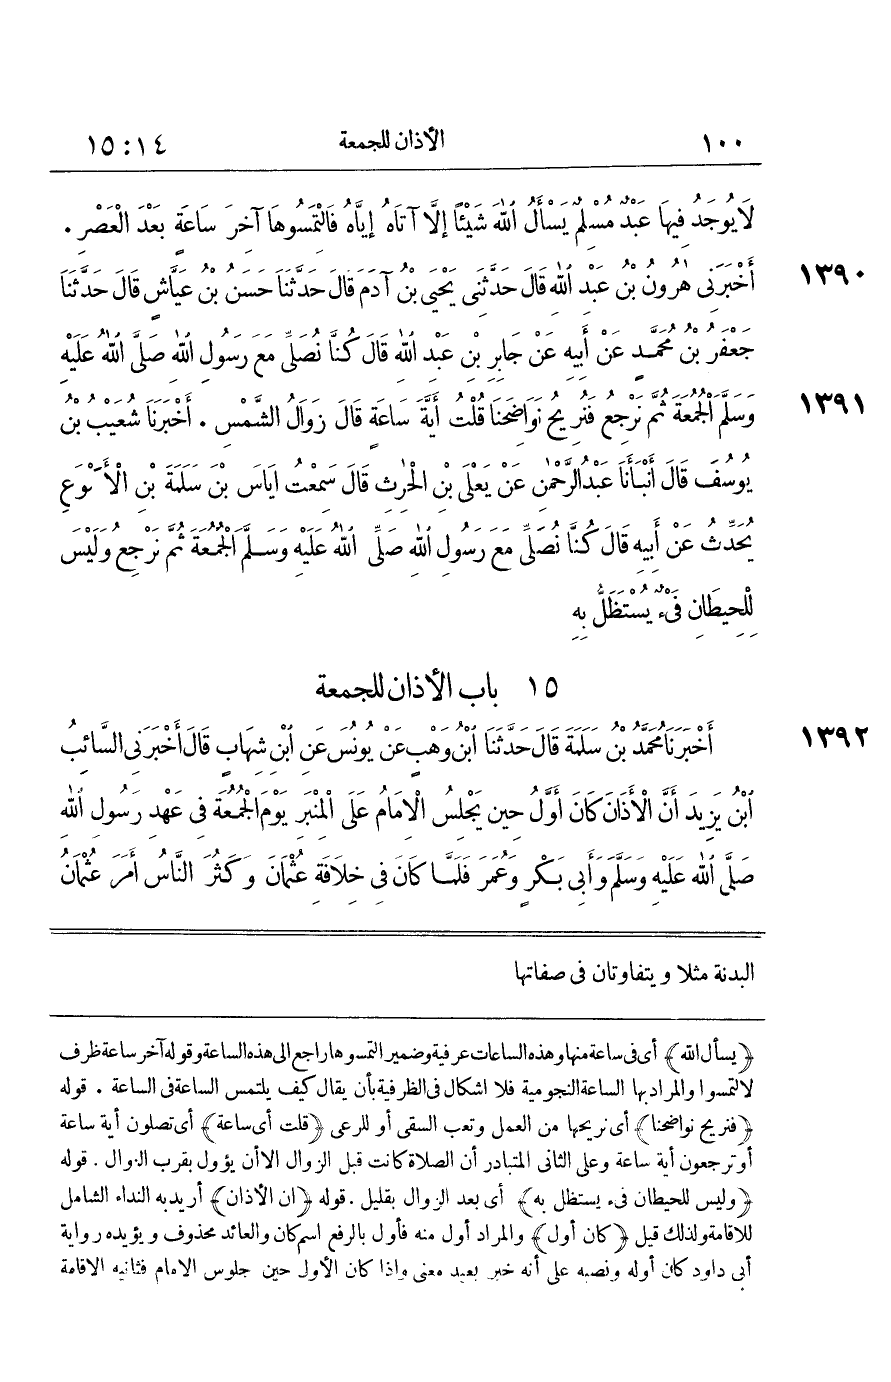 ١٠٠ الأذان للجمعة ١٤ : ١٥
لَا يُوجَدُ فِيهَا عَبْدٌ مُسْلِمٌ يَسْأَلُ اللّٰهَ شَيْئًا إِلَّا آتَاهُ إِيَّاهُ فَالْتَمِسُوهَا آخِرَ سَاعَةٍ بَعْدَ الْعَصْرِ .
١٣٩٠ أَخْبَرَنِى هٰرُونُ بْنُ عَبْدِ اللّٰهِ قَالَ حَدَّثَنِى يَحْيَى بْنُ آدَمَ قَالَ حَدَّثَنَا حَسَنُ بْنُ عَيَّاشٍ قَالَ حَدَّثَنَا
جَعْفَرُ بْنُ مُحَمَّدٍ عَنْ أَبِيهِ عَنْ جَابِرِ بْنِ عَبْدِ اللّٰهِ قَالَ كُنَّا نُصَلِّى مَعَ رَسُولِ اللّٰهِ صَلَّى اللّٰهُ عَلَيْهِ
١٣٩١ وَسَلَّمَ الْجُمُعَةَ ثُمَّ نَرْجِعُ فَنُرِيحُ نَوَاضِحَنَا قُلْتُ أَيَّةَ سَاعَةٍ قَالَ زَوَالُ الشَّمْسِ . أَخْبَرَنَا شُعَيْبُ بْنُ
يُوسُفَ قَالَ أَنْبَأَنَا عَبْدُ الرَّحْمٰنِ عَنْ يَعْلَى بْنِ الْحٰرِثِ قَالَ سَمِعْتُ اِيَاسَ بْنَ سَلَمَةَ بْنِ الْأَكْوَعِ
يُحَدِّثُ عَنْ أَبِيهِ قَالَ كُنَّا نُصَلِّى مَعَ رَسُولِ اللّٰهِ صَلَّى اللّٰهُ عَلَيْهِ وَسَلَّمَ الْجُمُعَةَ ثُمَّ نَرْجِعُ وَلَيْسَ
لِلْحِيطَانِ فَىْءٌ يُسْتَظَلُّ بِهِ
١٥ باب الأذان للجمعة
١٣٩٢ أَخْبَرَنَا مُحَمَّدُ بْنُ سَلَمَةَ قَالَ حَدَّثَنَا ابْنُ وَهْبٍ عَنْ يُونُسَ عَنِ ابْنِ شِهَابٍ قَالَ أَخْبَرَنِى السَّائِبُ
ابْنُ يَزِيدَ أَنَّ الْأَذَانَ كَانَ أَوَّلُ حِينَ يَجْلِسُ الْإِمَامُ عَلَى الْمِنْبَرِ يَوْمَ الْجُمُعَةِ فِى عَهْدِ رَسُولِ اللّٰهِ
صَلَّى اللّٰهُ عَلَيْهِ وَسَلَّمَ وَأَبِى بَكْرٍ وَعُمَرَ فَلَمَّا كَانَ فِى خِلَافَةِ عُثْمَانَ وَكَثُرَ النَّاسُ أَمَرَ عُثْمَانُ
البدنة مثلا ويتفاوتان فى صفاتها
﴿يسأل الله﴾ أى فى ساعة منها وهذه الساعات عرفية وضمير التمسوها راجع الى هذه الساعة وقوله آخر ساعة ظرف
لالتمسوا والمراد بها الساعة النجومية فلا اشكال فى الظرفية بأن يقال كيف يلتمس الساعة فى الساعة . قوله
﴿فنريح نواضحنا﴾ أى نريحها من العمل وتعب السقى أو للرعى ﴿قلت أى ساعة﴾ أى تصلون أية ساعة
أو ترجعون أية ساعة وعلى الثانى المتبادر أن الصلاة كانت قبل الزوال الا أن يؤول بقرب الزوال . قوله
﴿وليس للحيطان فىء يستظل به﴾ أى بعد الزوال بقليل . قوله ﴿ان الأذان﴾ أريد به النداء الشامل
للاقامة ولذلك قيل ﴿كان أول﴾ والمراد أول منه فأول بالرفع اسم كان والعائد محذوف ويؤيده رواية
أبى داود كان أوله ونصبه على أنه خبر بعيد معنى واذا كان الأول حين جلوس الامام فثانيه الاقامة